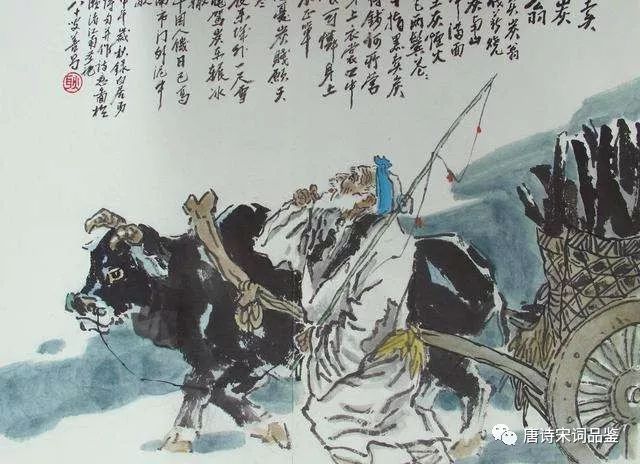 卖
炭
翁
卖炭翁
伐薪烧
炭南山
中满面
尘灰烟火
色两鬓苍
十指黑卖炭
得钱何所营
身上衣裳口中
可怜身上
衣正单
忧炭贱愿天
夜来城外一尺雪
驾炭车辗冰
牛困人饥日已高
市南门外泥中
歇
甲午岁秋录白居易
诗句并作诗意图於
耿
唐诗宋词品鉴